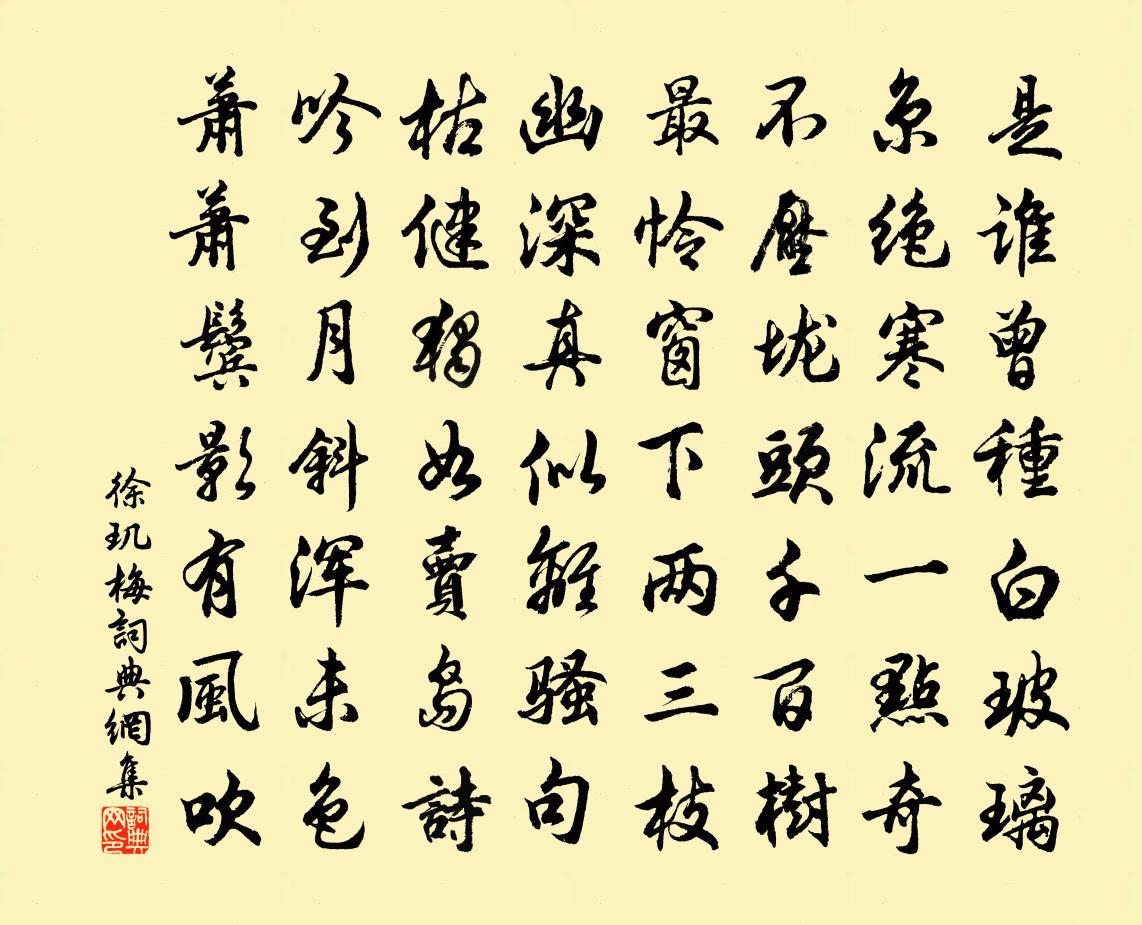 是誰曾種白玻璃
京絶寒流一點奇
不壓垅頭千百樹
最怜窗下两三枝
幽深真似離騷句
枯健獨如賣島詩
吟到月斜浑未色
蕭蕭鬢影有風吹
徐玑梅詞典網集
詞典网印